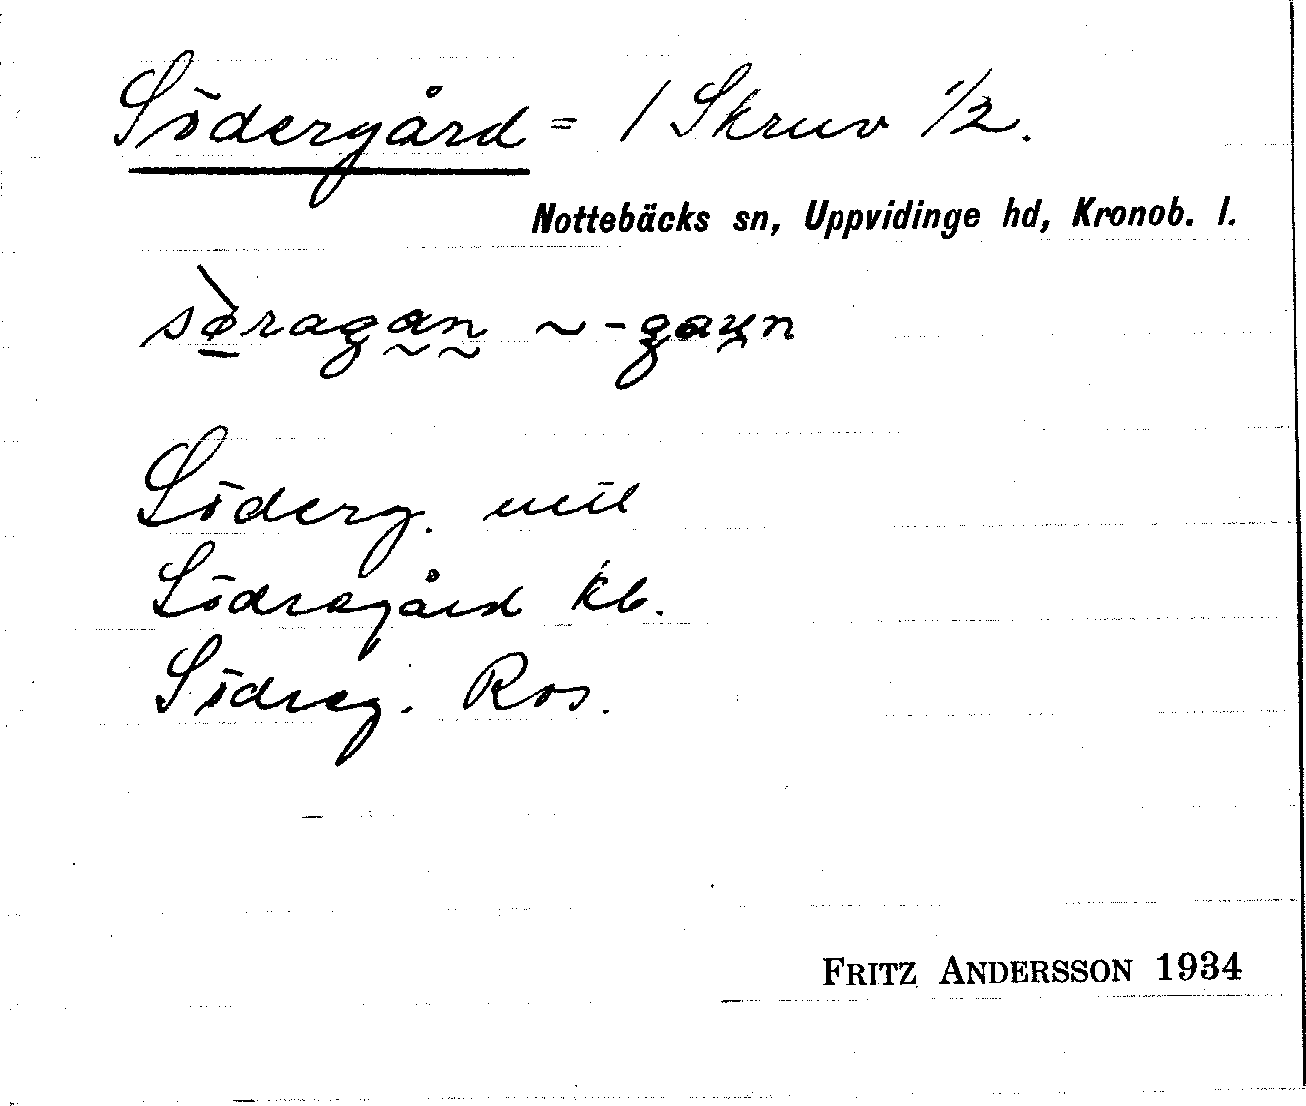 Södergård = / Skruv 1/2.
Nottebäcks sn, Uppvidinge hd, Kronob. l.
sø̀ragan ~ -gaɥn
Söderg. uttl
Södregård kb.
Södreg. Ros.
FRITZ ANDERSSON 1934